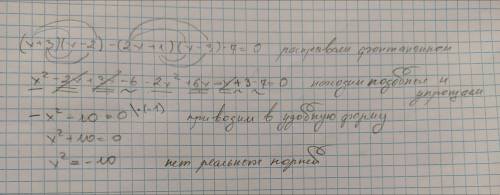 (x+3)(x-2)-(2x+1)(x-3)-7=0 раскрываем фонтанчиком
x²-2x+3x-6-2x²+6x-x+3-7=0 находим подобные и
упрощаем
-x²-10=0 |·(-1) приводим в удобную форму
x²+10=0
x²=-10 нет реальных корней